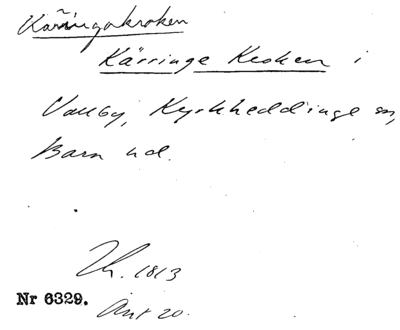 Käringakroken
Kärringe Kroken i
Vallby, Kyrkheddinge sn,
Bara hd.
Lk. 1813
Nr 6329.
Ant 20.